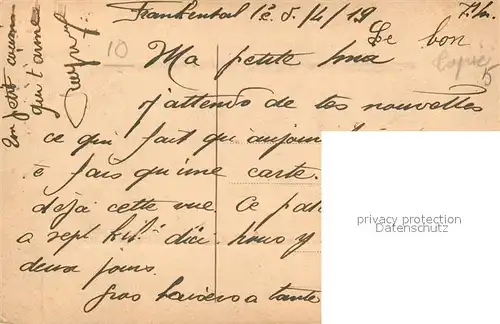 Frankental le 5/4/19
Le bon
10
Ma petite
j'attends de tes nouvelles
ce qui fait qu'aujour
fais qu'une carte.
déjà cette vue. Ce
a sept kil. d'ici. Nous y
deux jours.
Gros baisers a tante
Un petit
qui t'aime
privacy protection
Datenschutz